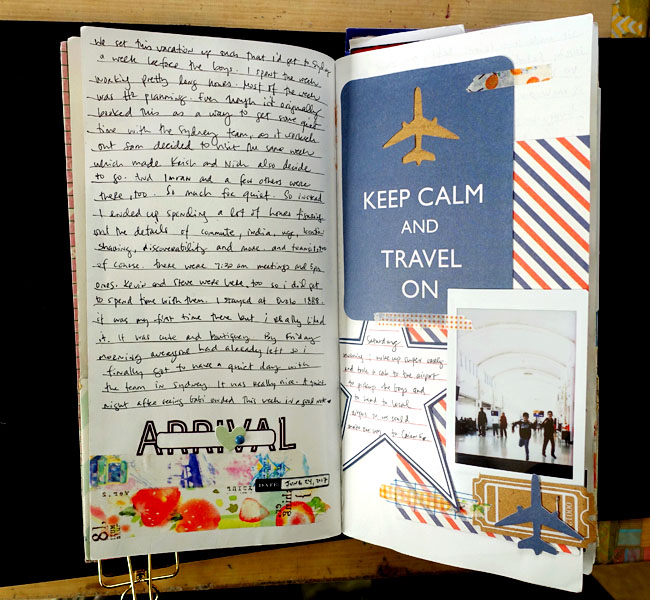 We set this vacation up such that i'd get to Sydney
a week before the boys. I spent the week
working pretty long hours. Most of the week
was H2 planning. Even though i'd originally
booked this as a way to get some quiet
time with the Sydney team, as it
out Sam decided to visit the same week
which made Keish and Nich also decide
to go. And Imran and a few others were
there, too. So much for quiet. So instead
I ended up spending a lot of hours
out the details of commute, india,
sharing, discoverability and more. and
of course. there were 7:30 am meetings and 5pm
ones. Kevin and Steve were here, too so i did get
to spend time with them. I stayed at 1888.
it was my first time there but i really liked
it. It was cute and boutiquey. By Friday
morning everyone had already left so i
finally got to have a quiet day with
the team in Sydney. It was really nice. A quiet
night after seeing Gabi ended this week in a good note.
ARRIVAL
DATE: JUNE 24, 2017
KEEP CALM
AND
TRAVEL
ON
Saturday
morning i woke up early
and took a cab to the airport
to pickup the boys and
to head to local
so we could
make our way to